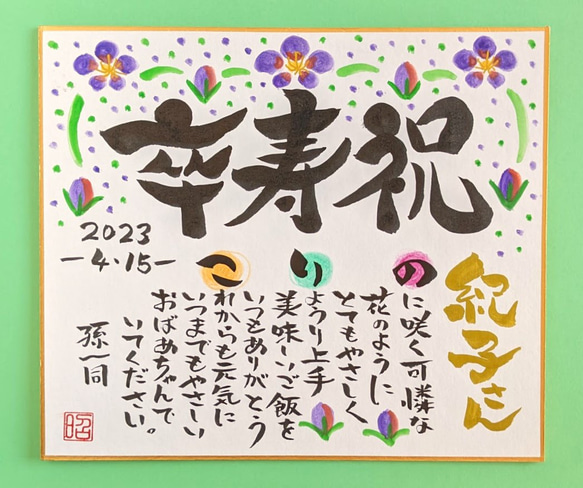 卒寿祝
紀子さん
のに咲く可憐な
花のように
とてもやさしく
りょうり上手
美味しいご飯を
いつもありがとう
これからも元気に
いつまでもやさしい
おばあちゃんで
いてください。
2023
-4・15-
孫一同
昭